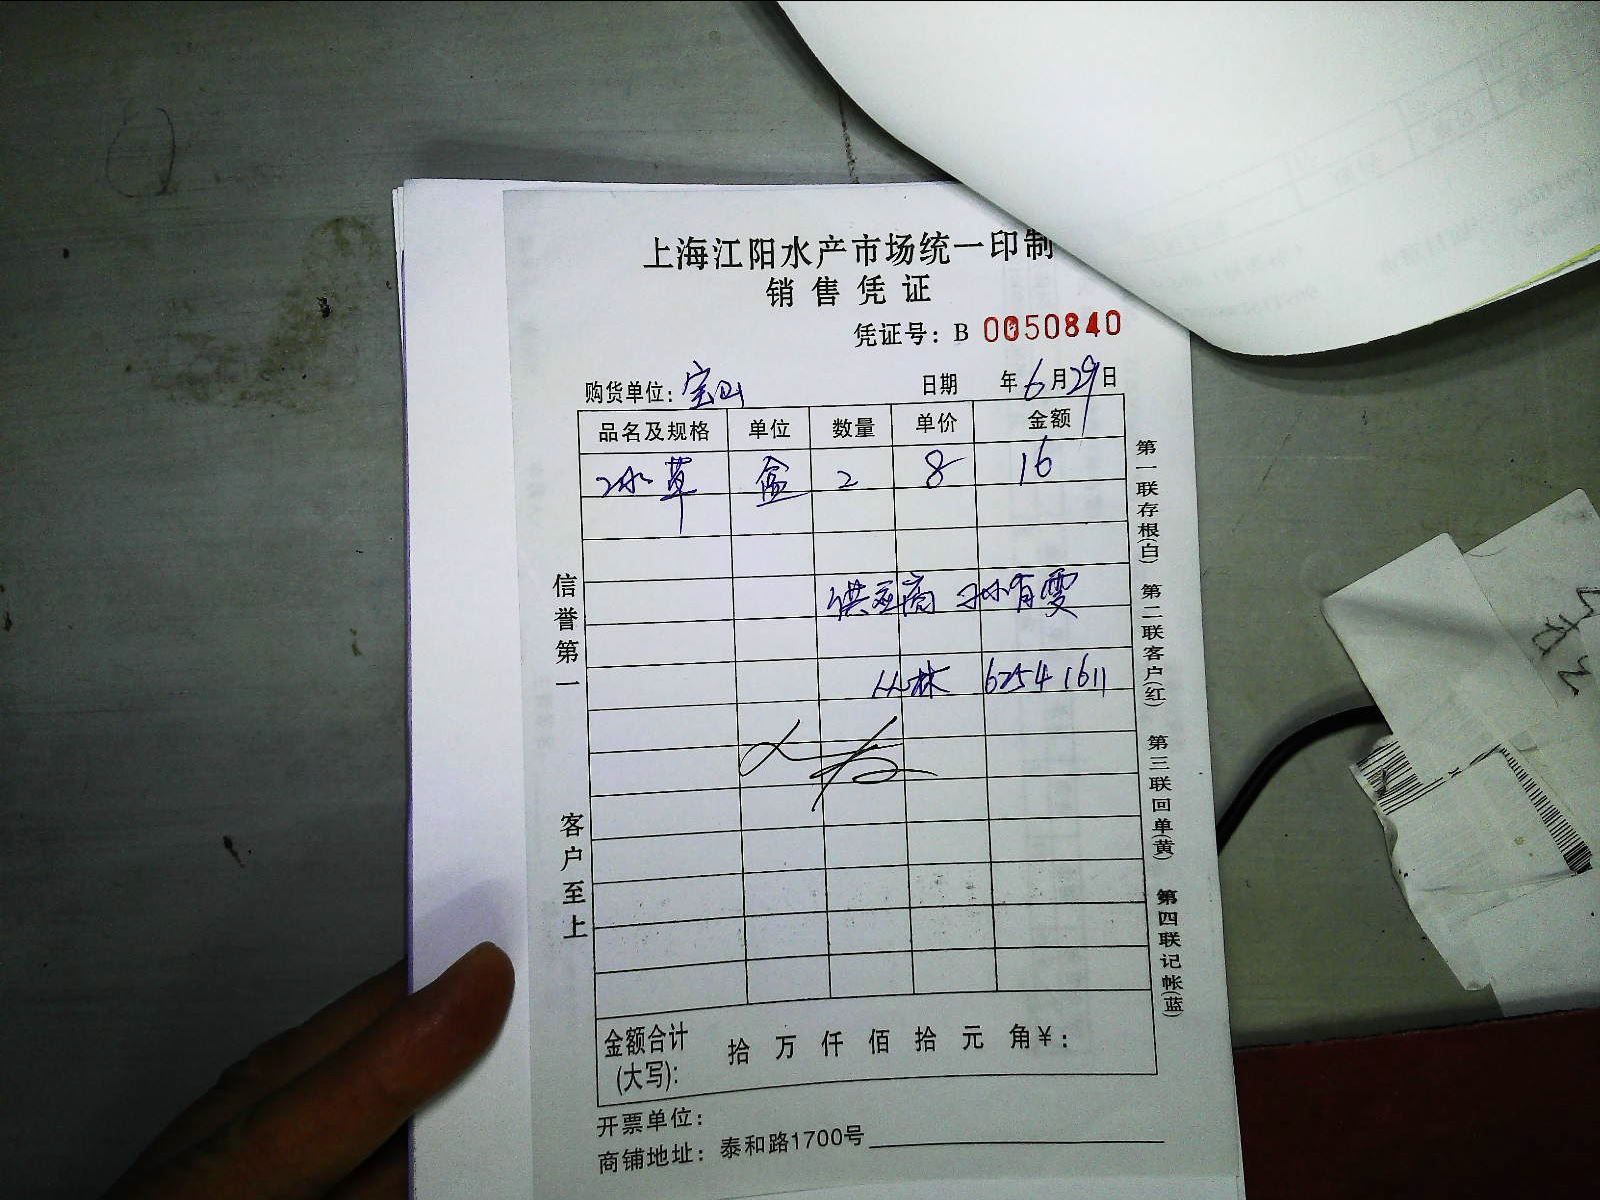 上海江阳水产市场统一印制
销售凭证
凭证号：B 0050840
购货单位：宝山 日期 年6月29日
品名及规格 单位 数量 单价 金额
冰草 盒 2 8 16
供应商 孙有雯
丛林 62541611
信誉第一
客户至上
第一联存根(白) 第二联客户(红) 第三联回单(黄) 第四联记帐(蓝)
金额合计(大写)： 拾 万 仟 佰 拾 元 角￥：
开票单位：
商铺地址：泰和路1700号